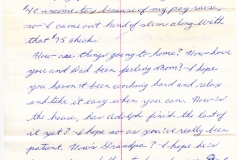 40 income tax because of my pay raise,
so I came out kind of slim along with
that $75 check.
How are things going to home? How have
you and Dad been feeling Mom? I hope
you haven't been working hard and relax
and take it easy when you can. How's
the house, has Adolph finish the last of
it yet? I hope so as you've really been
patient. How's Grandpa? I hope he's